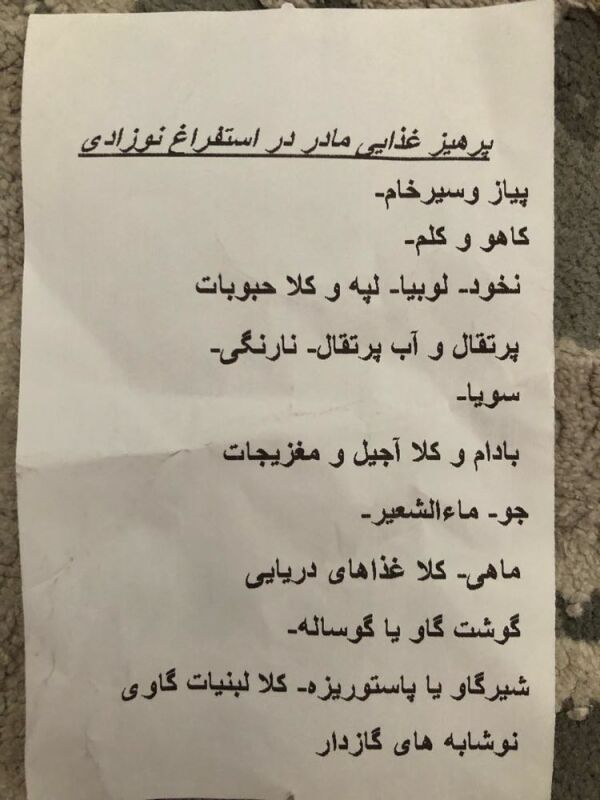 پرهیز غذایی مادر در استفراغ نوزادی
پیاز وسیرخام-
کاهو و کلم-
نخود- لوبیا- لپه و کلا حبوبات
پرتقال و آب پرتقال- نارنگی-
سویا-
بادام و کلا آجیل و مغزیجات
جو- ماءالشعیر-
ماهی- کلا غذاهای دریایی
گوشت گاو یا گوساله-
شیرگاو یا پاستوریزه- کلا لبنیات گاوی
نوشابه های گازدار